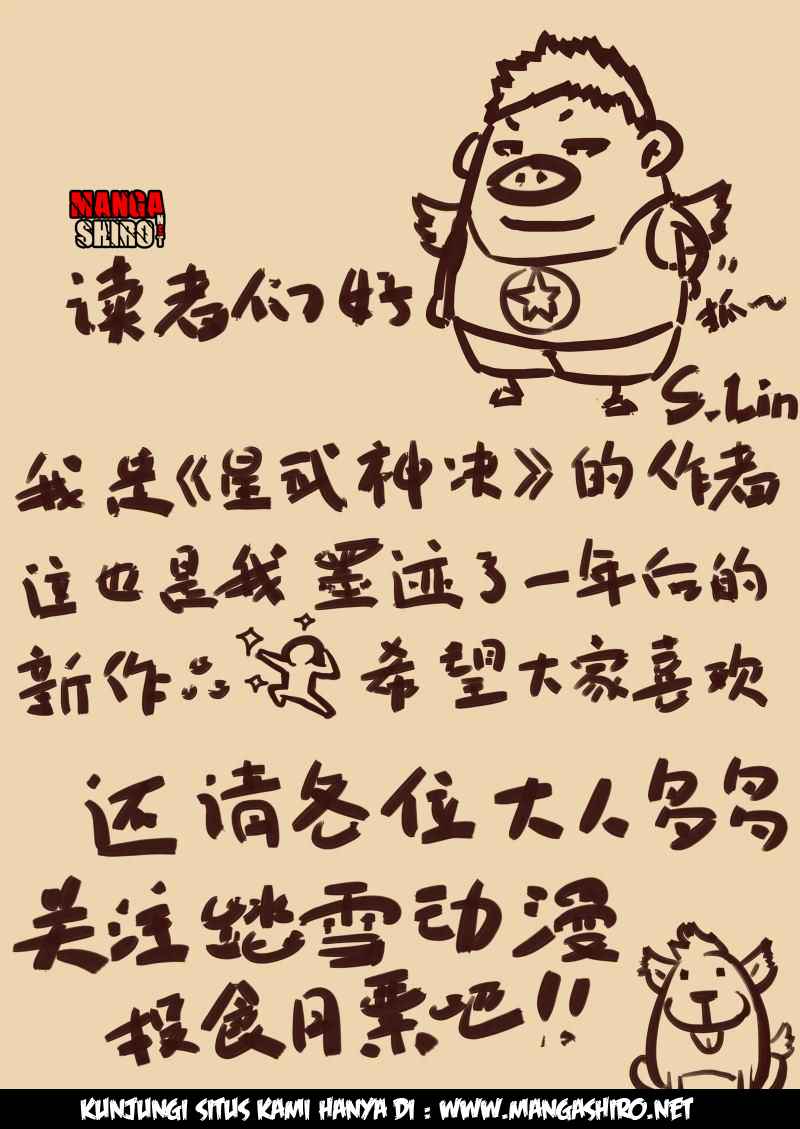 MANGA
SHIRO.NET
读者们好
狐~
S.Lin
我是《星武神决》的作者
这也是我墨迹了一年后的
新作。希望大家喜欢
还请各位大人多多
关注踏雪动漫
投食月票吧!!
KUNJUNGI SITUS KAMI HANYA DI : WWW.MANGASHIRO.NET